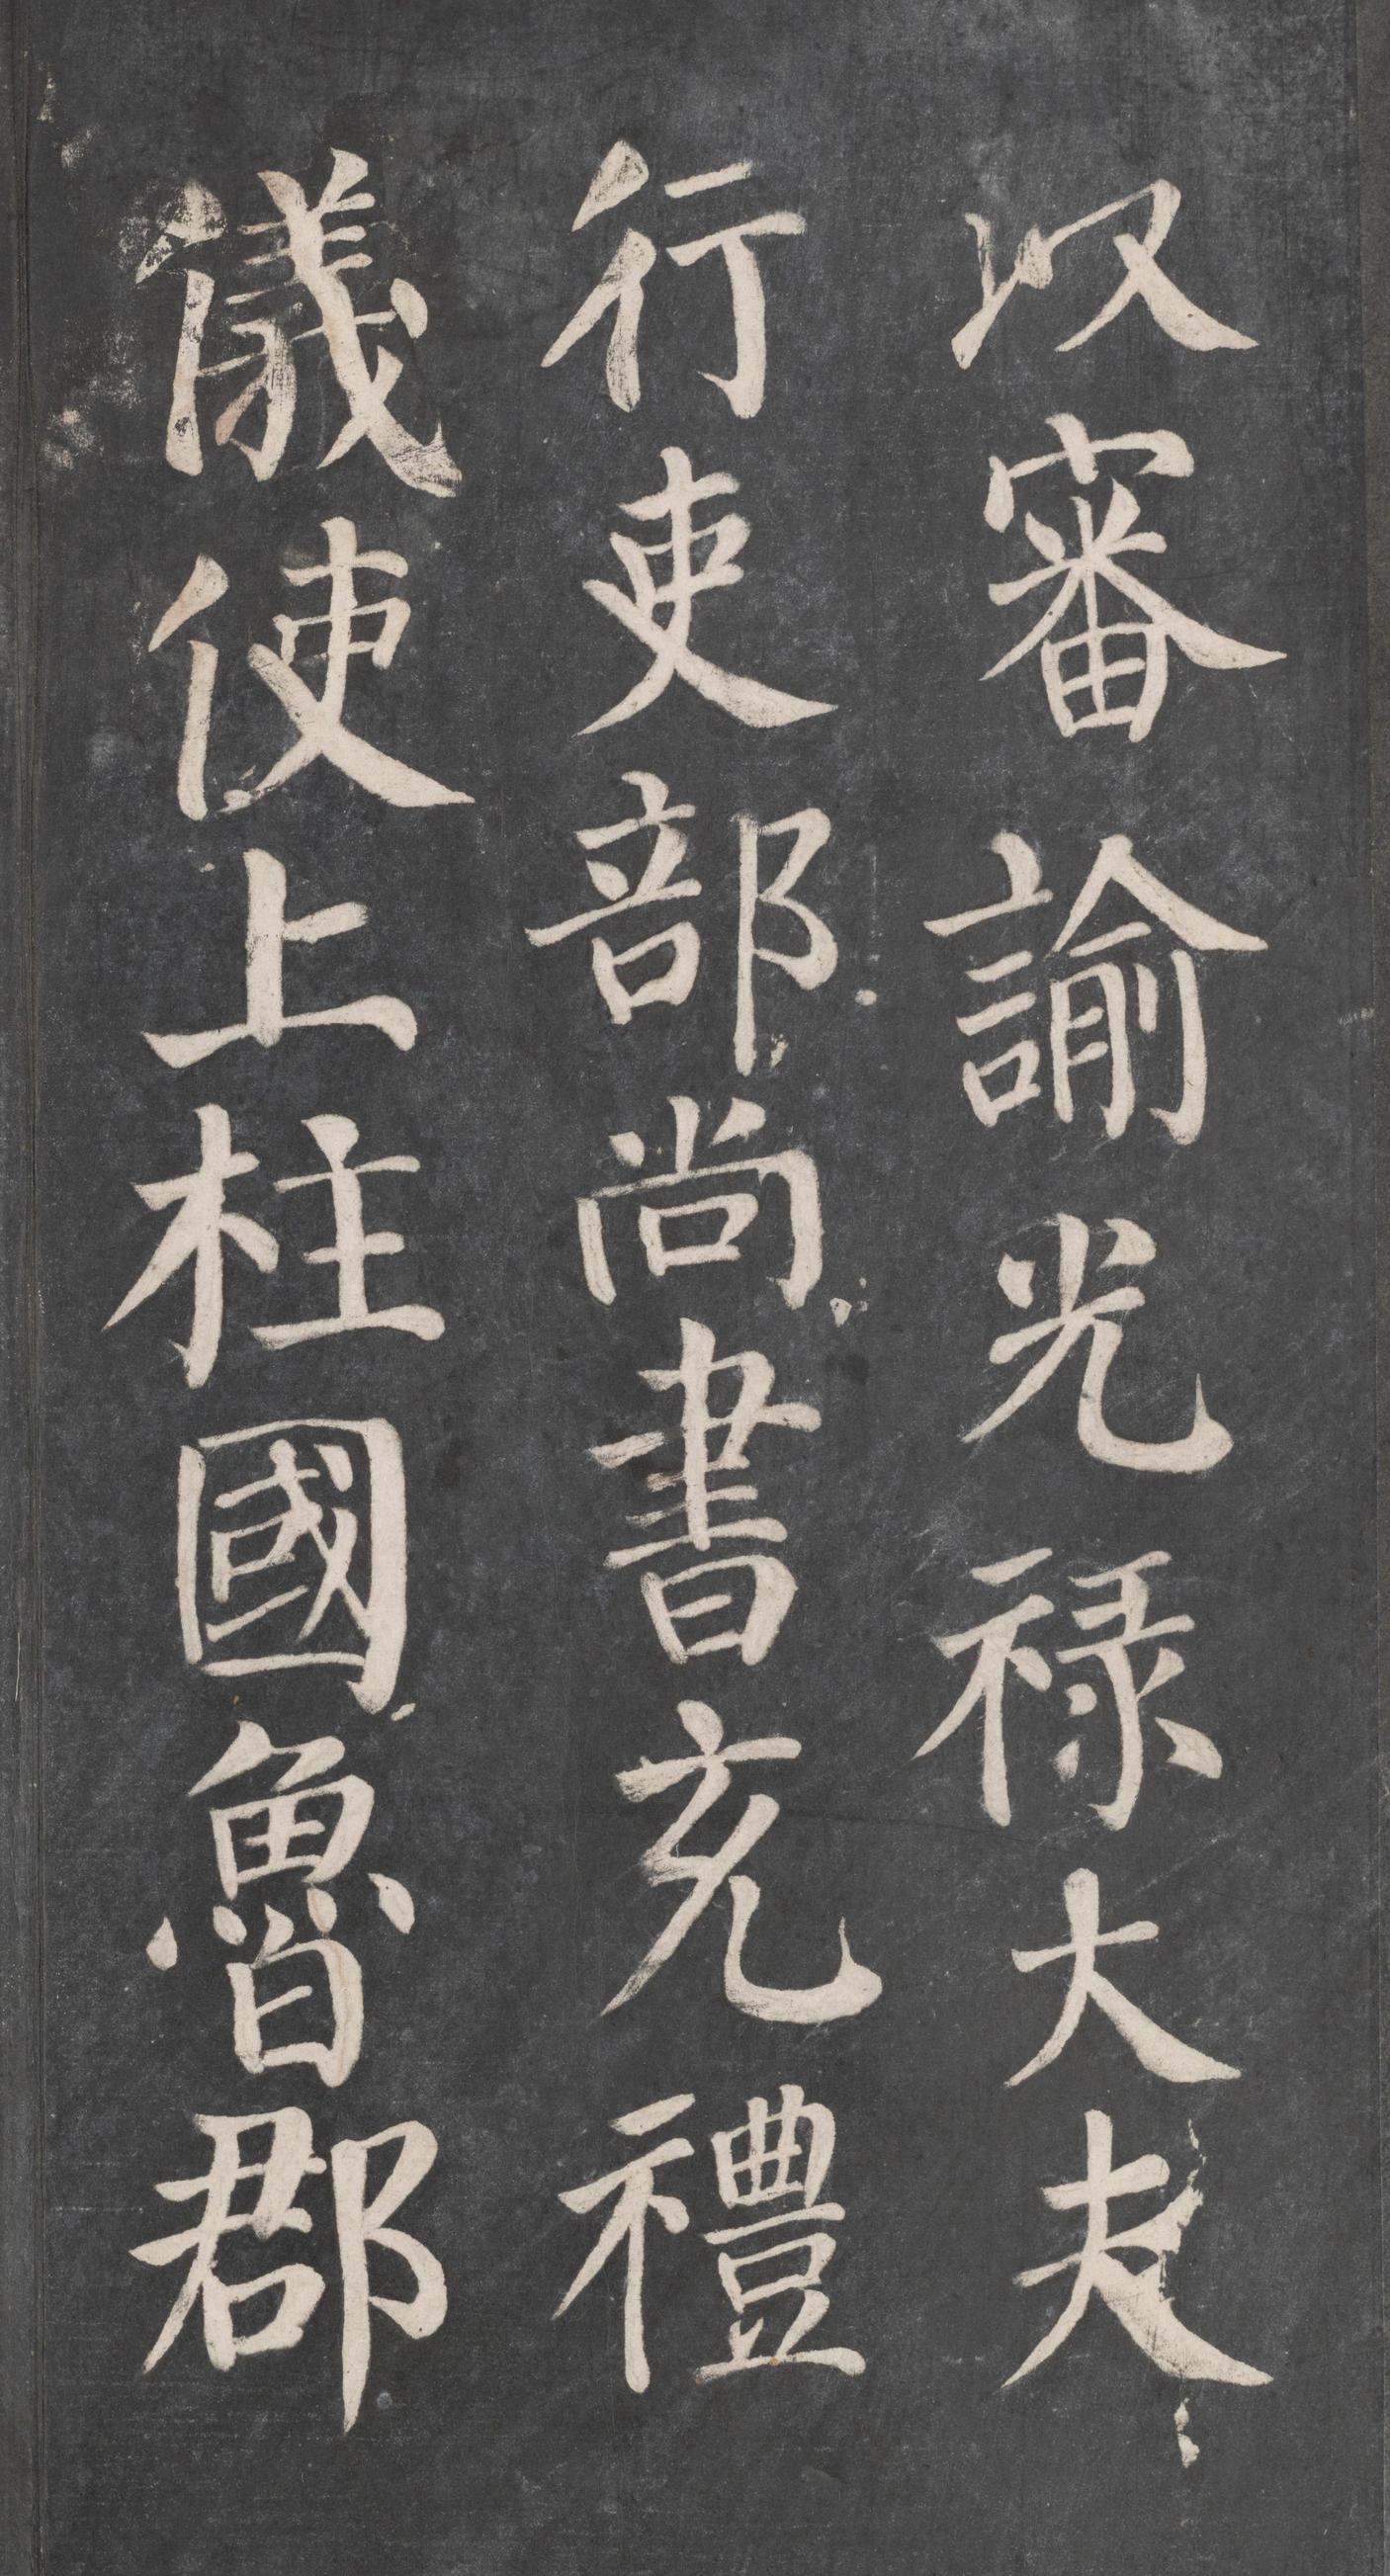 以審諭光禄大夫
行吏部尚書充禮
儀使上柱國魯郡